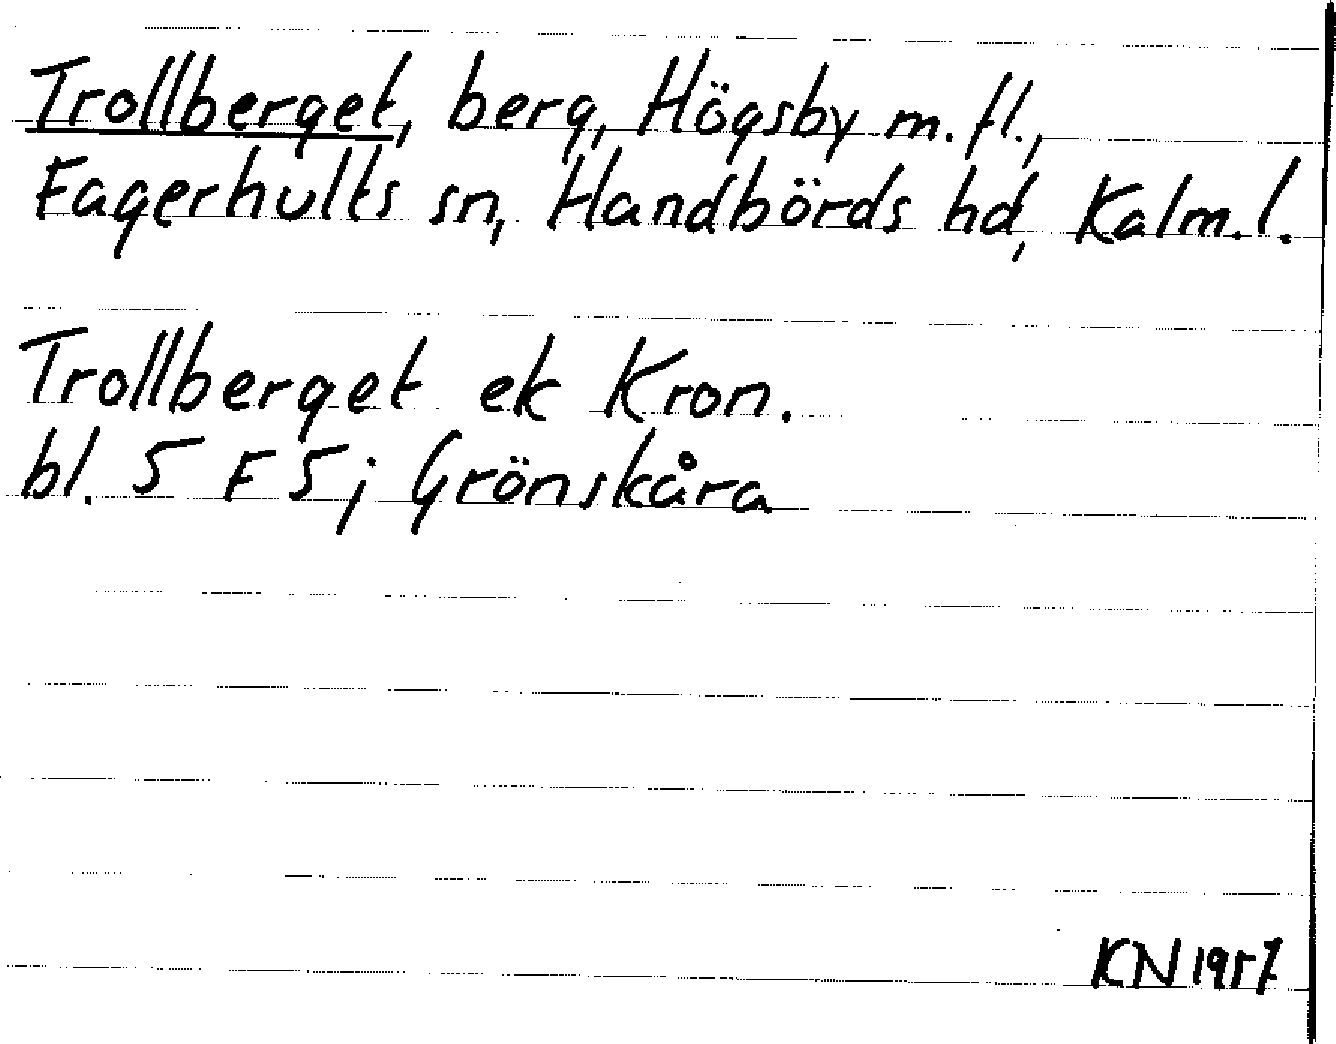 Trollberget, berg, Högsby m.fl.,
Fagerhults sn, Handbörds hd, Kalm.l.
Trollberget ek Kron.
bl. 5 F 5j Grönskåra
KN 1957